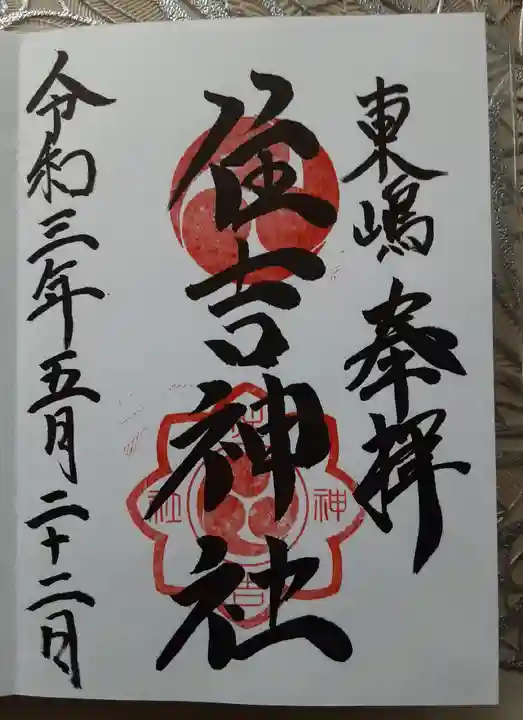 東嶋 奉拝
住吉神社
令和三年五月二十二日
神
吉
社